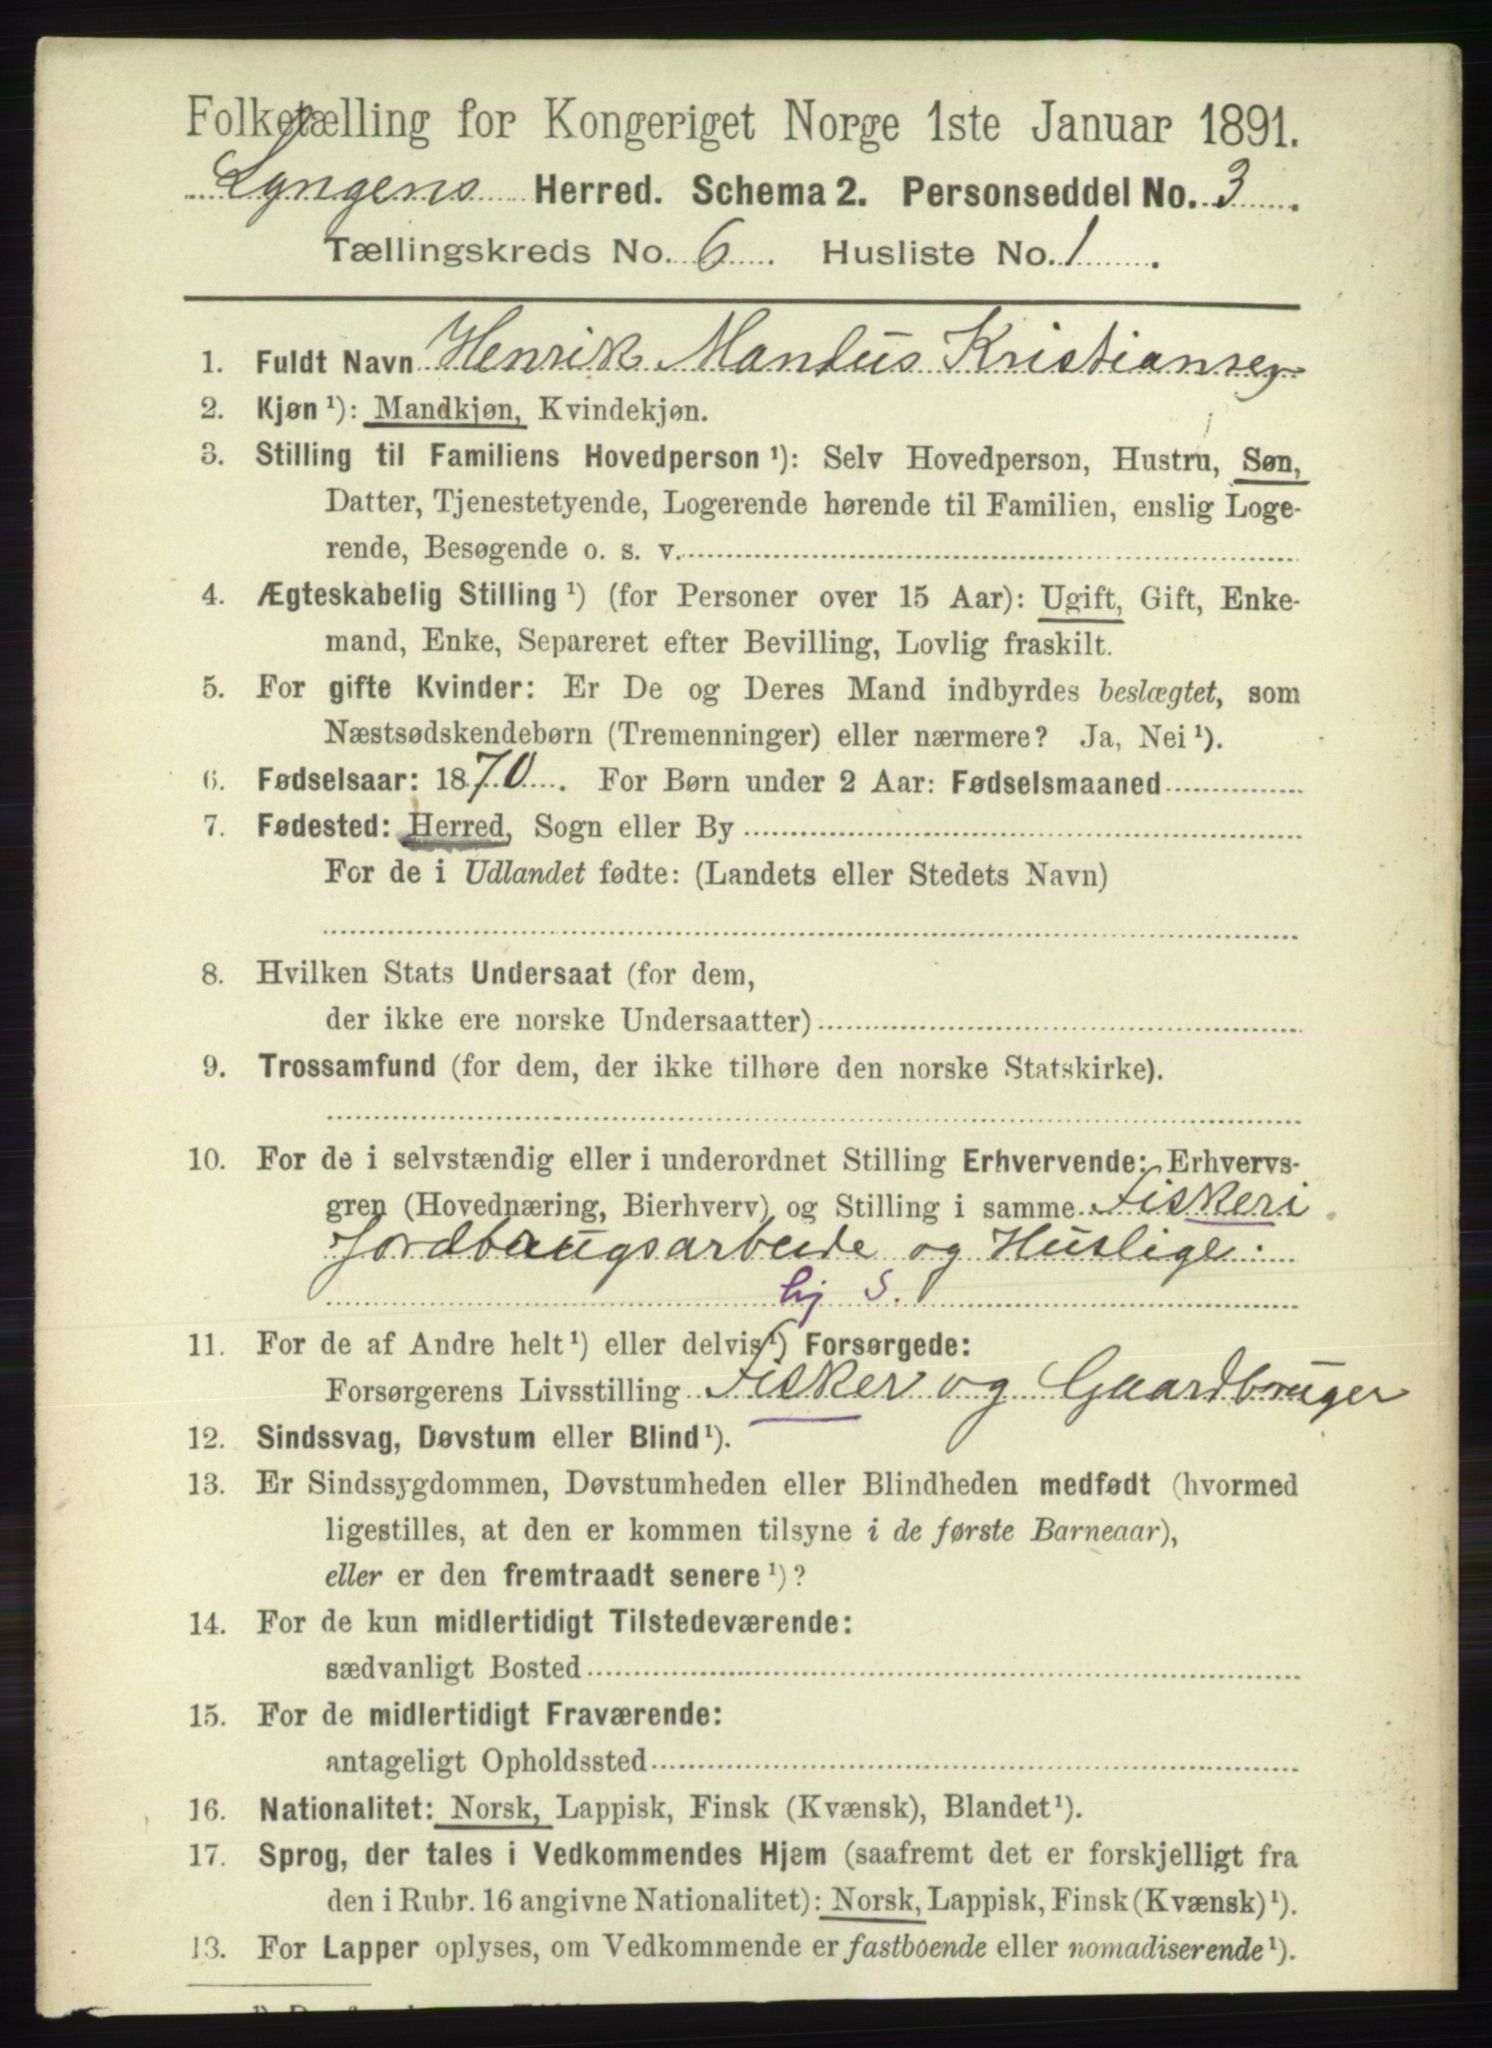 Folketælling for Kongeriget Norge 1ste Januar 1891.
Lyngens Herred. Schema 2. Personseddel No. 3.
Tællingskreds No. 6. Husliste No. 1.
1. Fuldt Navn Henrik Mandus Kristiansen
2. Kjøn ¹): Mandkjøn, Kvindekjøn.
3. Stilling til Familiens Hovedperson ¹): Selv Hovedperson, Hustru, Søn,
Datter, Tjenestetyende, Logerende hørende til Familien, enslig Loge-
rende, Besøgende o. s. v.
4. Ægteskabelig Stilling ¹) (for Personer over 15 Aar): Ugift, Gift, Enke-
mand, Enke, Separeret efter Bevilling, Lovlig fraskilt.
5. For gifte Kvinder: Er De og Deres Mand indbyrdes beslægtet, som
Næstsødskendebørn (Tremenninger) eller nærmere? Ja, Nei ¹).
6. Fødselsaar: 1870. For Børn under 2 Aar: Fødselsmaaned
7. Fødested: Herred, Sogn eller By
For de i Udlandet fødte: (Landets eller Stedets Navn)
8. Hvilken Stats Undersaat (for dem,
der ikke ere norske Undersaatter)
9. Trossamfund (for dem, der ikke tilhøre den norske Statskirke).
10. For de i selvstændig eller i underordnet Stilling Erhvervende: Erhvervs-
gren (Hovednæring, Bierhverv) og Stilling i samme Fiskeri
Jordbrugsarbeide og Huslige.
hj S.
11. For de af Andre helt ¹) eller delvis ¹) Forsørgede:
Forsørgerens Livsstilling Fisker og Gaardbruger
12. Sindssvag, Døvstum eller Blind ¹).
13. Er Sindssygdommen, Døvstumheden eller Blindheden medfødt (hvormed
ligestilles, at den er kommen tilsyne i de første Barneaar),
eller er den fremtraadt senere ¹)?
14. For de kun midlertidigt Tilstedeværende:
sædvanligt Bosted
15. For de midlertidigt Fraværende:
antageligt Opholdssted
16. Nationalitet: Norsk, Lappisk, Finsk (Kvænsk), Blandet ¹).
17. Sprog, der tales i Vedkommendes Hjem (saafremt det er forskjelligt fra
den i Rubr. 16 angivne Nationalitet): Norsk, Lappisk, Finsk (Kvænsk) ¹).
13. For Lapper oplyses, om Vedkommende er fastboende eller nomadiserende ¹).